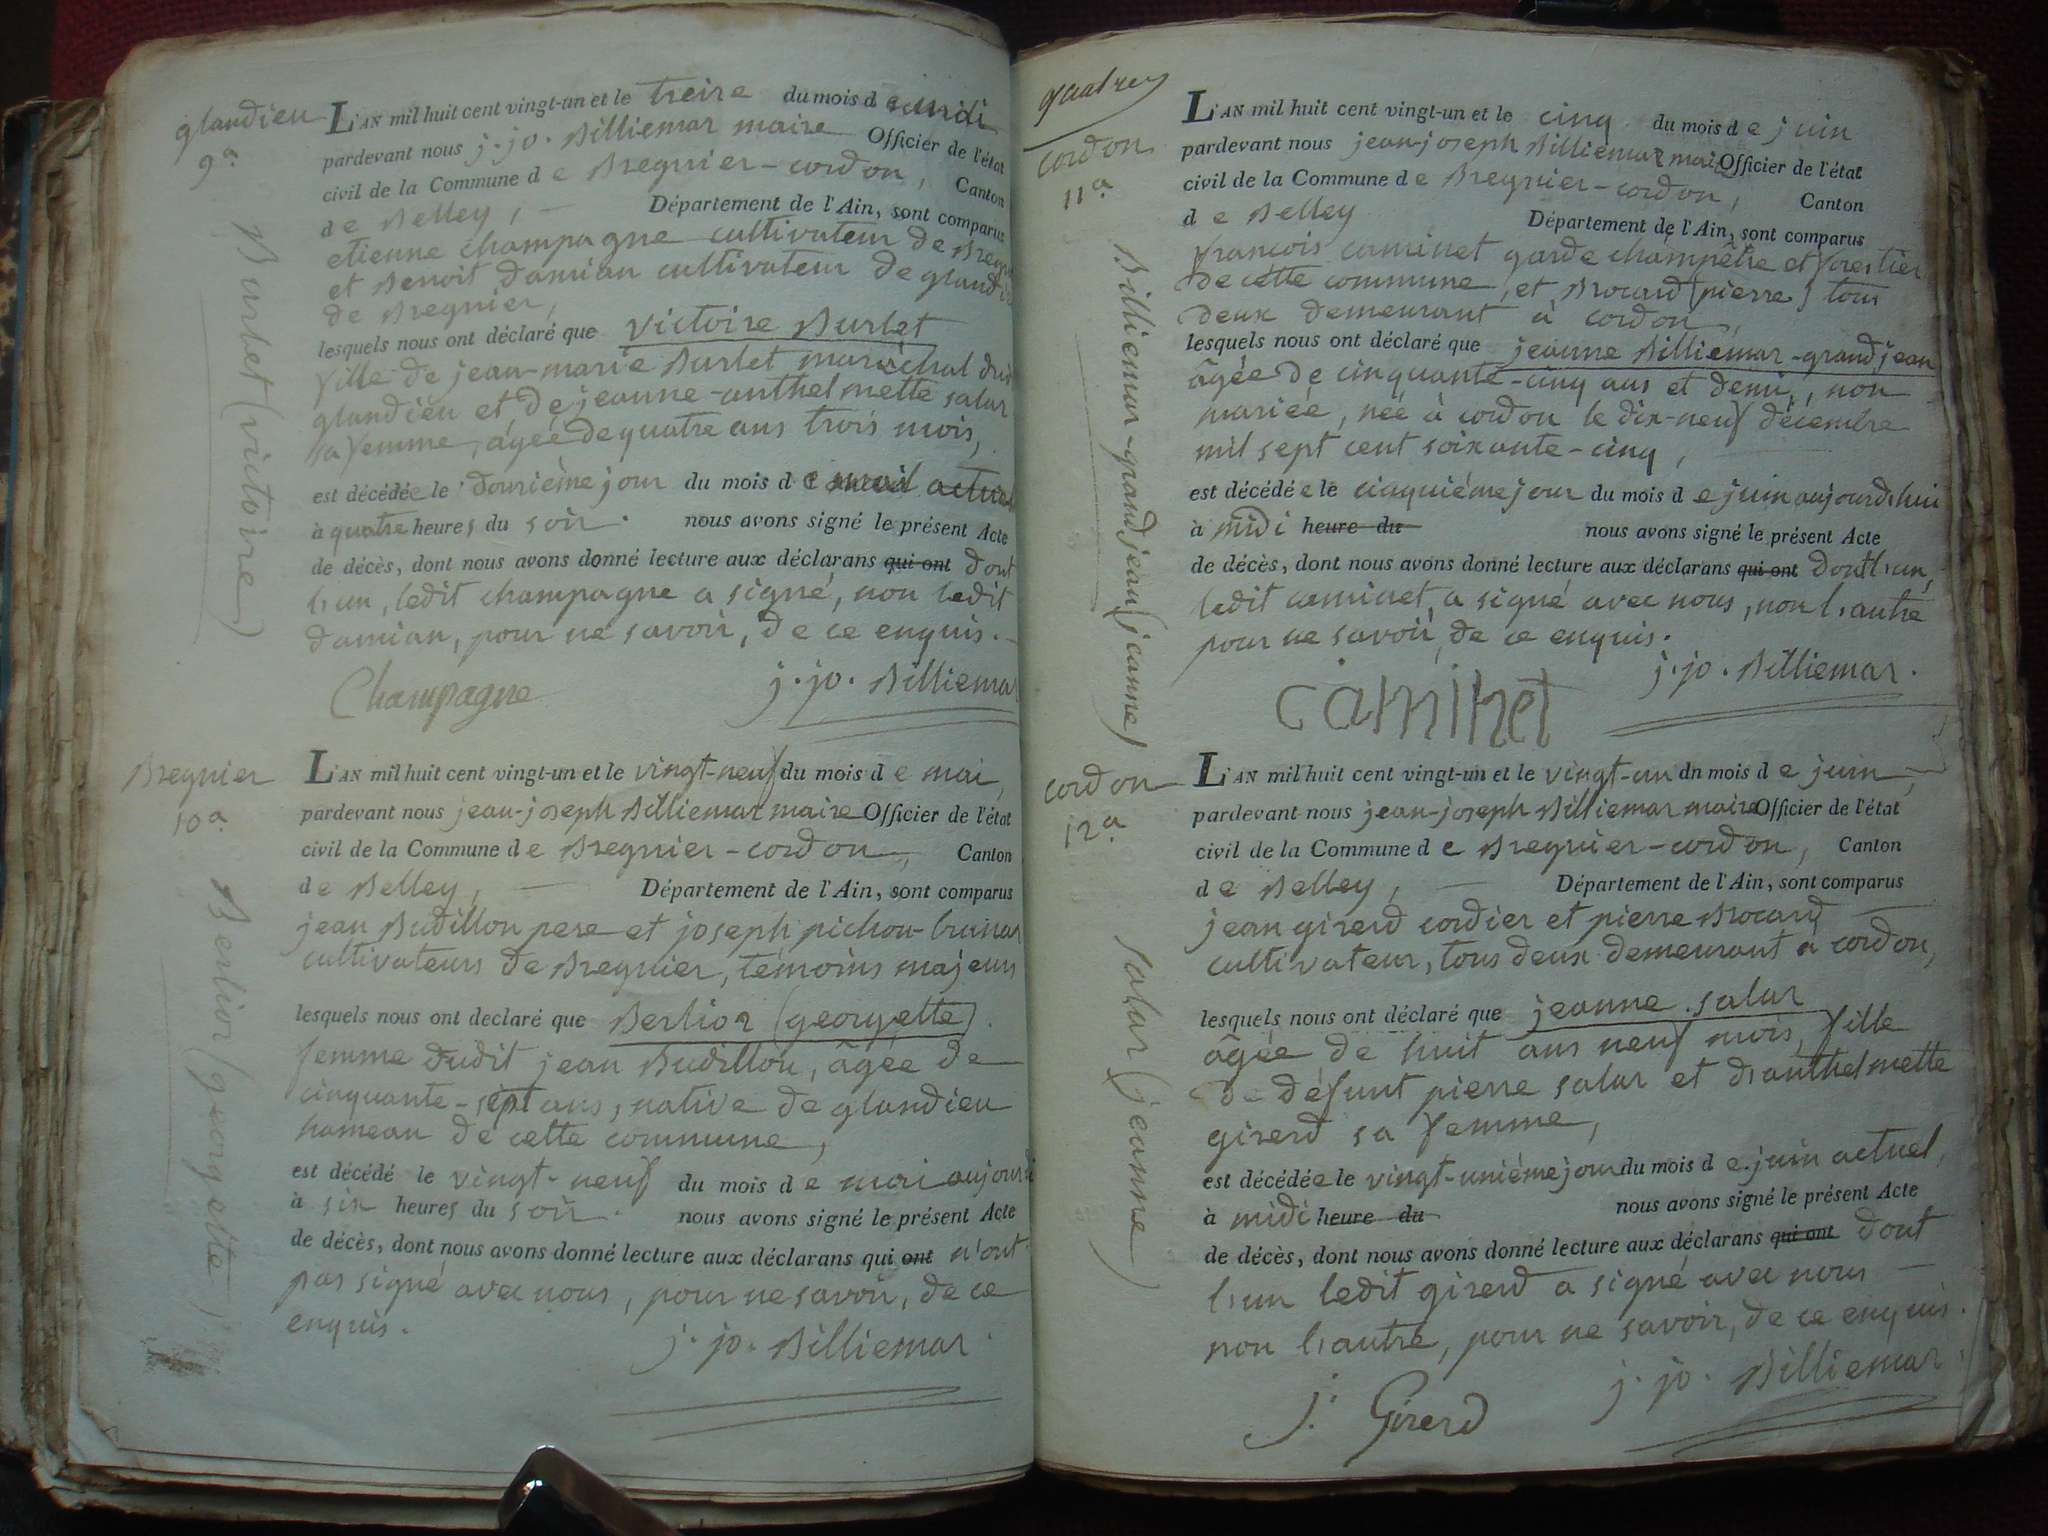 glandieu
9e.
Burlet (victoire)
L'AN mil huit cent vingt-un et le treize du mois d
pardevant nous j. jo. Billiemar maire Officier de l'état
civil de la Commune de Bregnier-cordon, Canton
de Belley, Département de l'Ain, sont comparus
etienne champagne cultivateur de
et Benoit damian cultivateur de
de Bregnier,
lesquels nous ont déclaré que victoire Burlet
fille de jean-marie Burlet maréchal
glandieu et de jeanne-anthelmette salar
sa femme, âgée de quatre ans trois mois,
est décédée le douzième jour du mois de actuel
à quatre heures du soir. nous avons signé le présent Acte
de décès, dont nous avons donné lecture aux déclarans qui ont dont
l'un, ledit champagne a signé, non ledit
damian, pour ne savoir, de ce enquis.
Champagne j. jo. Billiemar
Bregnier
10a.
Berlior (georgette)
L'AN mil huit cent vingt-un et le vingt-neuf du mois de mai
pardevant nous jean-joseph Billiemar maire Officier de l'état
civil de la Commune de Bregnier-cordon, Canton
de Belley, Département de l'Ain, sont comparus
jean Budillon pere et joseph pichon-
cultivateurs de Bregnier, témoins majeurs
lesquels nous ont declaré que Berlior (georgette)
femme dudit jean Budillon, âgée de
cinquante-sept ans, native de glandieu
hameau de cette commune,
est décédé le vingt-neuf du mois de mai
à six heures du soir. nous avons signé le présent Acte
de décès, dont nous avons donné lecture aux déclarans qui ont n'ont
pas signé avec nous, pour ne savoir, de ce
enquis.
j. jo. Billiemar.
cordon
11a.
Billiemar-grandjean (jeanne)
L'AN mil huit cent vingt-un et le cinq du mois de juin
pardevant nous jean-joseph Billiemar maire Officier de l'état
civil de la Commune de Bregnier-cordon, Canton
de Belley Département de l'Ain, sont comparus
françois caminet garde champêtre et forestier
de cette commune, et Brocard (pierre) tous
deux demeurant à cordon,
lesquels nous ont déclaré que jeanne Billiemar-grandjean
âgée de cinquante-cinq ans et demi, non
mariée, née à cordon le dix-neuf décembre
mil sept cent soixante-cinq,
est décédée le cinquième jour du mois de juin aujourd'hui
à midi heure du nous avons signé le présent Acte
de décès, dont nous avons donné lecture aux déclarans qui ont dont l'un,
ledit caminet, a signé avec nous, non l'autre
pour ne savoir, de ce enquis.
j. jo. Billiemar.
caminet
cordon
12a.
salar (jeanne)
L'AN mil huit cent vingt-un et le vingt-un du mois de juin
pardevant nous jean-joseph Billiemar maire Officier de l'état
civil de la Commune de Bregnier-cordon, Canton
de Belley, Département de l'Ain, sont comparus
jean girerd cordier et pierre Brocard
cultivateur, tous deux demeurant à cordon,
lesquels nous ont déclaré que jeanne salar
âgée de huit ans neuf mois, fille
de défunt pierre salar et d'anthelmette
girerd sa femme,
est décédée le vingt-unième jour du mois de juin actuel,
à midi heure du nous avons signé le présent Acte
de décès, dont nous avons donné lecture aux déclarans qui ont dont
l'un ledit girerd a signé avec nous
non l'autre, pour ne savoir, de ce enquis.
j. jo. Billiemar
j. Girerd